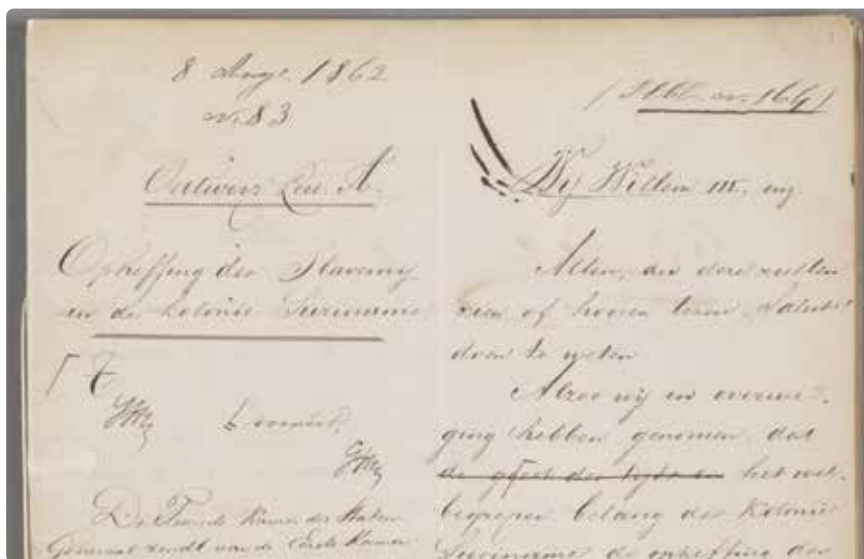 8 Aug. 1862
No. 83
Ontwerp Lett. A.
Opheffing der Slavernij
in de kolonie Suriname
De Tweede Kamer der Staten
Generaal zendt aan de Eerste Kamer
(Stbl. no. 164)
Wij Willem III, enz.
Allen, die deze zullen
zien of hooren lezen, salut!
doen te weten
Alzoo wij in overwe-
ging hebben genomen, dat
de geest des tijds en het wel-
begrepen belang der Kolonie
Suriname de opheffing der